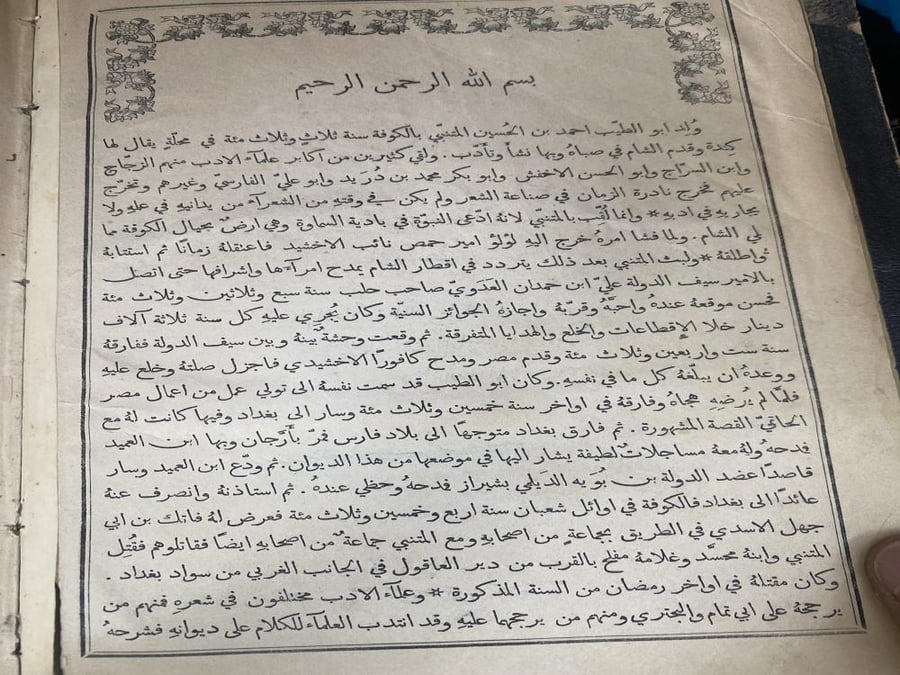 بسم الله الرحمن الرحيم
وُلد ابو الطيّب احمد بن الحُسين المتنبّي بالكوفة سنة ثلاثٍ وثلاث مئة في محلّةٍ يقال لها
كندة وقدم الشام في صباهُ وبها نشأ وتأدّب. ولقي كثيرين من اكابر علمآء الادب منهم الزجّاج
وابن السرّاج وابو الحسن الاخفش وابو بكر محمد بن دُرَيد وابو عليّ الفارسيّ وغيرهم وتخرّج
عليهم فخرج نادرة الزمان في صناعة الشعر ولم يكن في وقتهِ من الشعرآء من يدانيهِ في علمهِ ولا
يجاريهِ في ادبهِ * وانما لُقّب بالمتنبّي لانهُ ادّعى النبوّة في بادية السماوة وهي ارضٌ بحيال الكوفة مما
يلي الشام. ولما فشا امرهُ خرج اليهِ لؤلؤ امير حمص نائب الاخشيد فاعتقلهُ زمانًا ثم استتابهُ
واطلقهُ * ولبث المتنبي بعد ذلك يتردد في اقطار الشام يمدح امرآءها واشرافها حتى اتصل
بالامير سيف الدولة عليّ ابن حمدان العَدَويّ صاحب حلب سنة سبع وثلاثين وثلاث مئة
فحسن موقعهُ عندهُ واحبّهُ وقرّبهُ واجازهُ الجوائز السنيّة وكان يُجرِي عليهِ كل سنة ثلاثة آلاف
دينار خلا الإقطاعات والخلع والهدايا المتفرقة. ثم وقعت وحشةٌ بينهُ وبين سيف الدولة ففارقهُ
سنة ست واربعين وثلاث مئة وقدم مصر ومدح كافورًا الاخشيدي فاجزل صلتهُ وخلع عليهِ
ووعدهُ ان يبلّغهُ كل ما في نفسهِ. وكان ابو الطيب قد سمت نفسهُ الى تولي عمل من اعمال مصر
فلمّا لم يُرضِهِ هجاهُ وفارقهُ في اواخر سنة خمسين وثلاث مئة وسار الى بغداد وفيها كانت لهُ مع
الحاتميّ القصة المشهورة. ثم فارق بغداد متوجهًا الى بلاد فارس فمرّ بأرَّجان وبها ابن العميد
فمدحهُ ولهُ معهُ مساجلاتٌ لطيفة يشار اليها في موضعها من هذا الديوان. ثم ودّع ابن العميد وسار
قاصدًا عضد الدولة بن بُوَيه الديلمي بشيراز فمدحهُ وحظي عندهُ. ثم استأذنهُ وانصرف عنهُ
عائدًا الى بغداد فالكوفة في اوائل شعبان سنة اربع وخمسين وثلاث مئة فعرض لهُ فاتك بن ابي
جهل الاسدي في الطريق بجماعةٍ من اصحابهِ ومع المتنبي جماعةٌ من اصحابهِ ايضًا فقاتلوهم فقُتِل
المتنبي وابنهُ محسَّد وغلامهُ مفلح بالقرب من دير العاقول في الجانب الغربي من سواد بغداد.
وكان مقتلهُ في اواخر رمضان من السنة المذكورة * وعلمآء الادب مختلفون في شعرهِ فمنهم من
يرجحهُ على ابي تمام والبحتري ومنهم من يرجحهما عليهِ وقد انتدب العلمآء للكلام على ديوانهِ فشرحهُ